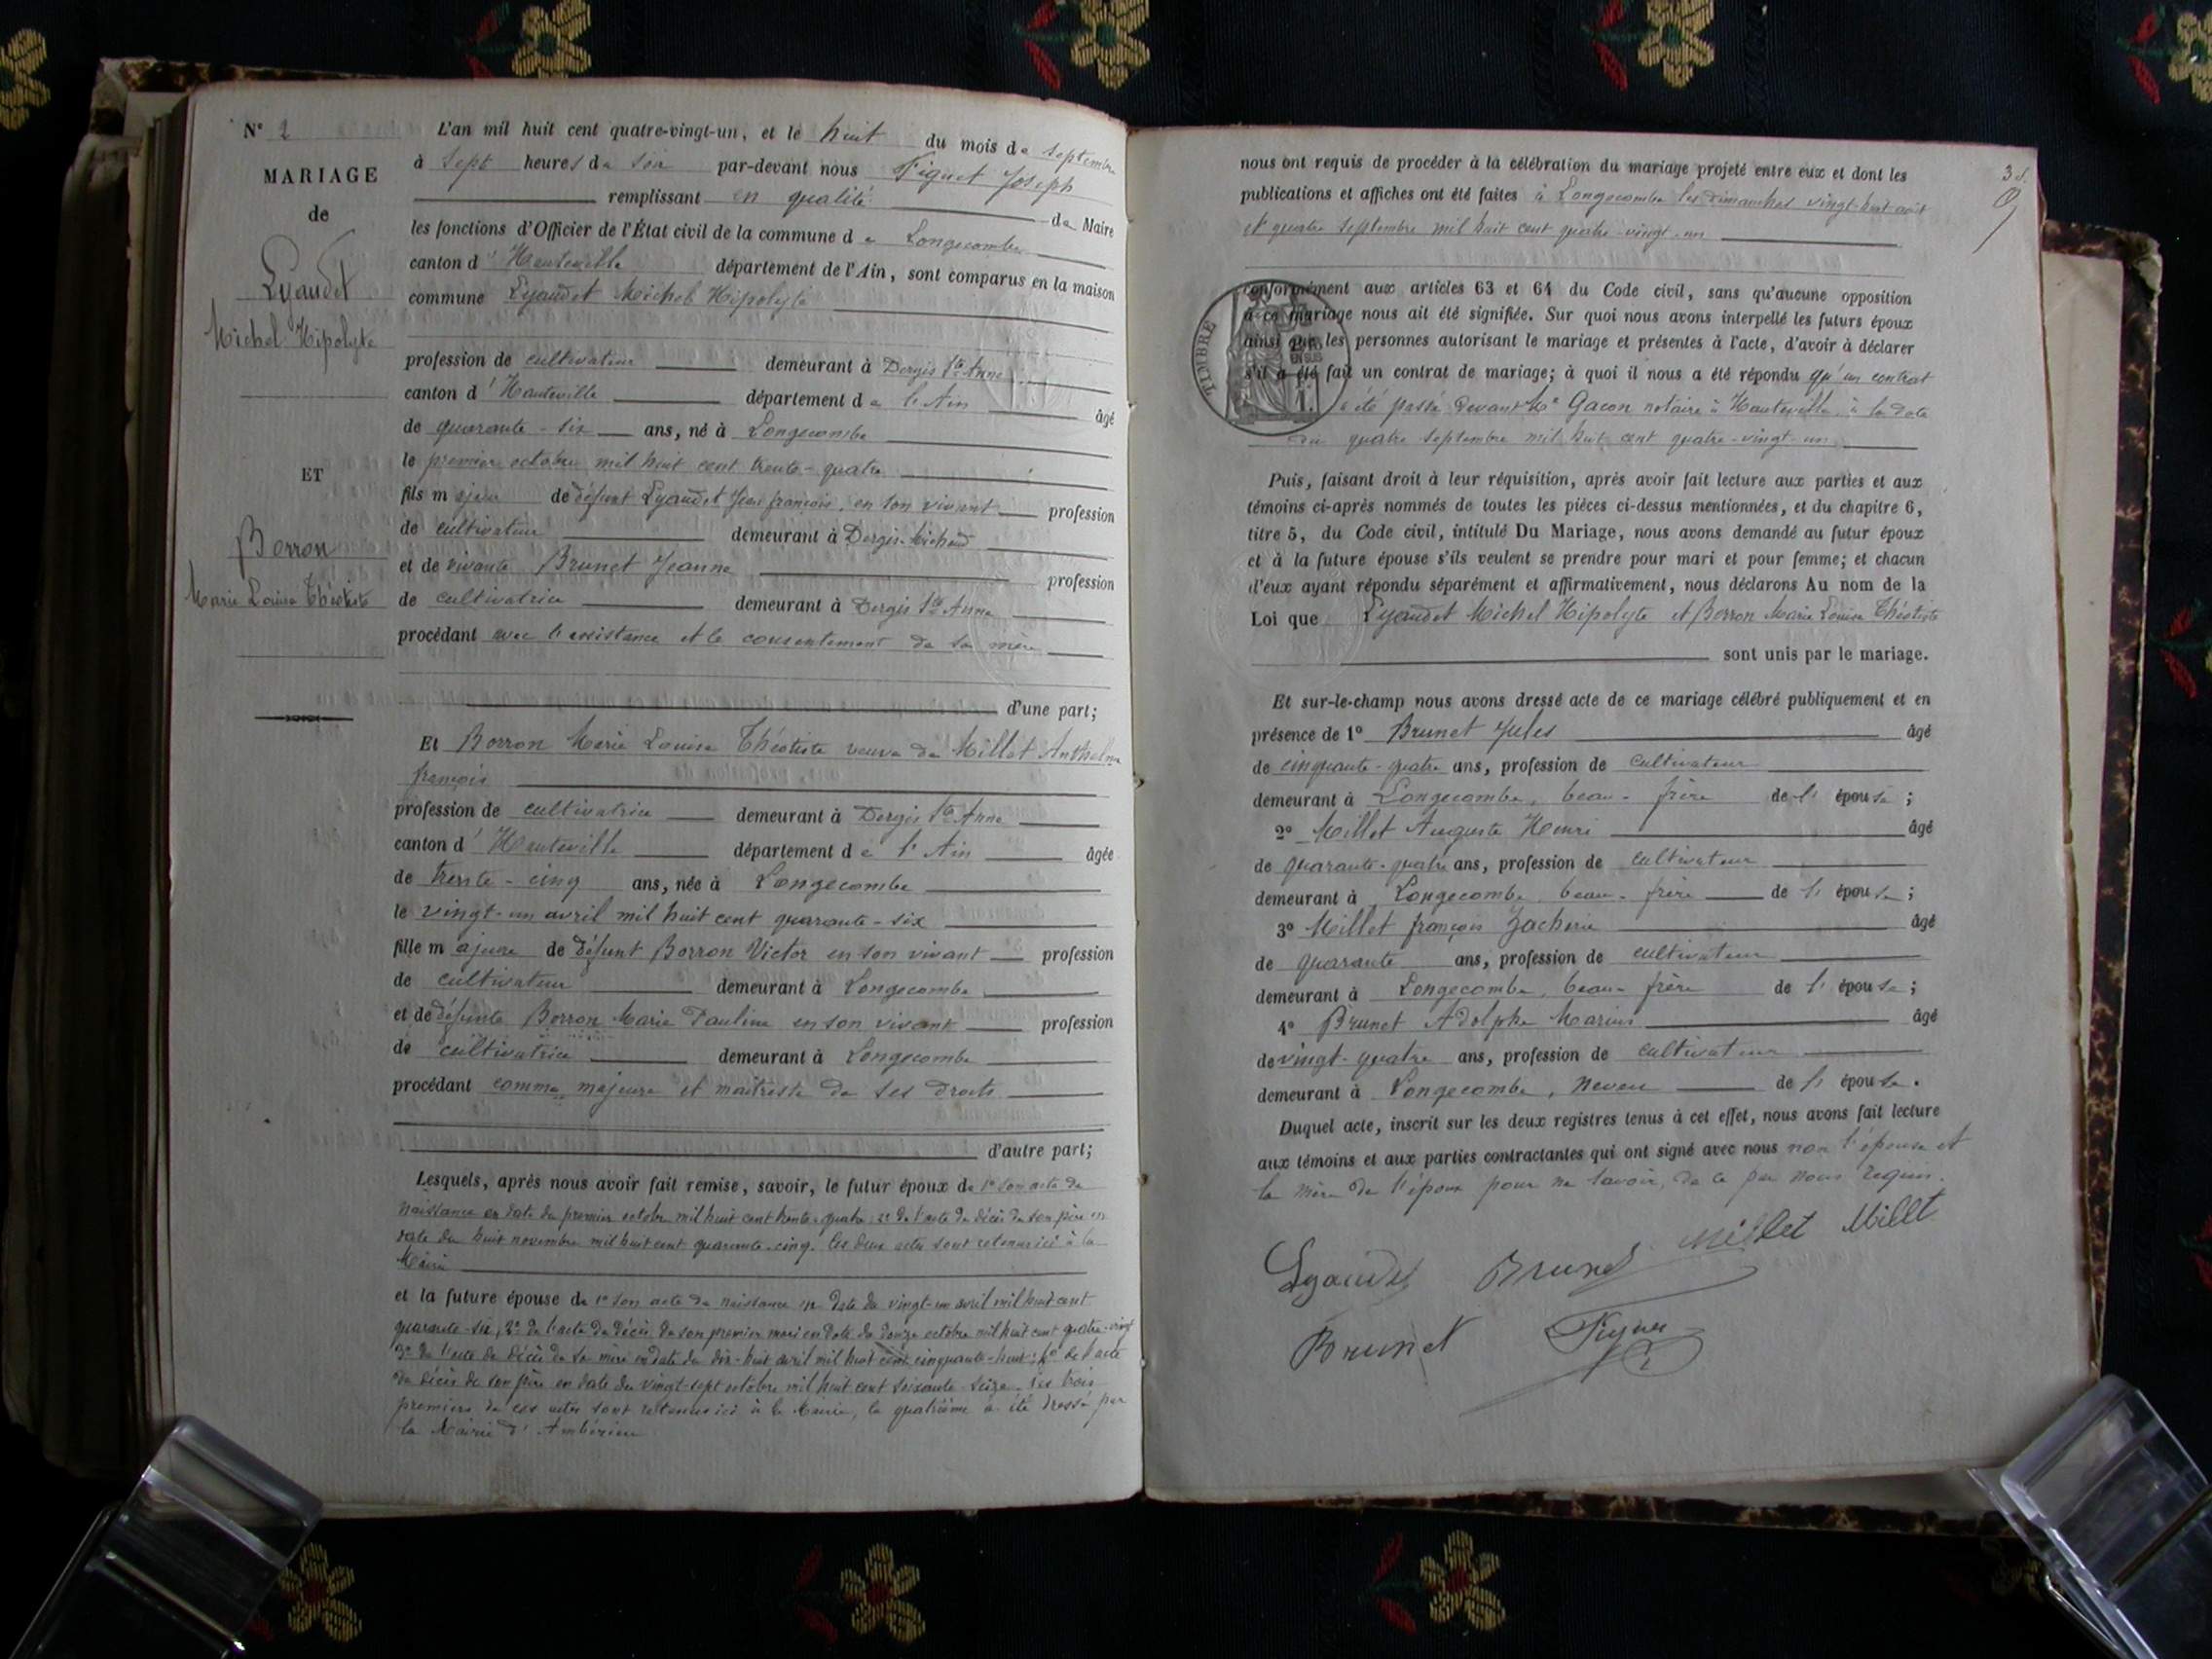 N° 2
MARIAGE
de
Lyaudet
Michel Hipolyte
ET
Borron
Marie Louise Théotiste
L'an mil huit cent quatre-vingt-un, et le huit du mois de septembre
à sept heures du soir par-devant nous Piguet Joseph
remplissant en qualité de Maire
les fonctions d'Officier de l'État civil de la commune de Longecombe
canton d'Hauteville département de l'Ain, sont comparus en la maison
commune Lyaudet Michel Hipolyte
profession de cultivateur demeurant à Dergis Ste Anne
canton d'Hauteville département de l'Ain âgé
de quarante-six ans, né à Longecombe
le premier octobre mil huit cent trente-quatre
fils majeur de défunt Lyaudet Jean françois, en son vivant profession
de cultivateur demeurant à Dergis-Michaud
et de vivante Brunet Jeanne profession
de cultivatrice demeurant à Dergis Ste Anne
procédant avec l'assistance et le consentement de sa mère
d'une part;
Et Borron Marie Louise Théotiste veuve de Millet Anthelme
françois
profession de cultivatrice demeurant à Dergis Ste Anne
canton d'Hauteville département de l'Ain âgée
de trente-cinq ans, née à Longecombe
le vingt-un avril mil huit cent quarante-six
fille majeure de défunt Borron Victor en son vivant profession
de cultivateur demeurant à Longecombe
et de défunte Borron Marie Pauline en son vivant profession
de cultivatrice demeurant à Longecombe
procédant comme majeure et maîtresse de ses droits
d'autre part;
Lesquels, après nous avoir fait remise, savoir, le futur époux de 1° son acte de
naissance en date du premier octobre mil huit cent trente-quatre, 2° de l'acte de décès de son père en
date du huit novembre mil huit cent quarante-cinq. Ces deux actes sont retenus ici à la
Mairie
et la future épouse de 1° son acte de naissance en date du vingt-un avril mil huit cent
quarante-six, 2° de l'acte de décès de son premier mari en date du douze octobre mil huit cent quatre-vingt
3° de l'acte de décès de sa mère en date du dix-huit avril mil huit cent cinquante-huit; 4° de l'acte
de décès de son père en date du vingt-sept octobre mil huit cent soixante-seize. Les trois
premiers de ces actes sont retenus ici à la Mairie, le quatrième a été dressé par
la Mairie d'Ambérieu
3
nous ont requis de procéder à la célébration du mariage projeté entre eux et dont les
publications et affiches ont été faites à Longecombe les dimanches vingt-huit août
et quatre septembre mil huit cent quatre-vingt-un
TIMBRE
conformément aux articles 63 et 64 du Code civil, sans qu'aucune opposition
à ce mariage nous ait été signifiée. Sur quoi nous avons interpellé les futurs époux
ainsi que les personnes autorisant le mariage et présentes à l'acte, d'avoir à déclarer
s'il a été fait un contrat de mariage; à quoi il nous a été répondu qu'un contrat
a été passé devant Me Gacon notaire à Hauteville, à la date
du quatre septembre mil huit cent quatre-vingt-un
Puis, faisant droit à leur réquisition, après avoir fait lecture aux parties et aux
témoins ci-après nommés de toutes les pièces ci-dessus mentionnées, et du chapitre 6,
titre 5, du Code civil, intitulé Du Mariage, nous avons demandé au futur époux
et à la future épouse s'ils veulent se prendre pour mari et pour femme; et chacun
d'eux ayant répondu séparément et affirmativement, nous déclarons Au nom de la
Loi que Lyaudet Michel Hipolyte et Borron Marie Louise Théotiste
sont unis par le mariage.
Et sur-le-champ nous avons dressé acte de ce mariage célébré publiquement et en
présence de 1° Brunet Jules âgé
de cinquante-quatre ans, profession de cultivateur
demeurant à Longecombe, beau-frère de l'épouse;
2° Millet Auguste Henri âgé
de quarante-quatre ans, profession de cultivateur
demeurant à Longecombe, beau-frère de l'épouse;
3° Millet françois Zacharie âgé
de quarante ans, profession de cultivateur
demeurant à Longecombe, beau-frère de l'épouse;
4° Brunet Adolphe Marius âgé
de vingt-quatre ans, profession de cultivateur
demeurant à Longecombe, neveu de l'épouse.
Duquel acte, inscrit sur les deux registres tenus à cet effet, nous avons fait lecture
aux témoins et aux parties contractantes qui ont signé avec nous non l'épouse et
la mère de l'époux pour ne savoir, de ce par nous requis.
Lyaudet Brunet Millet Millet
Brunet Piguet